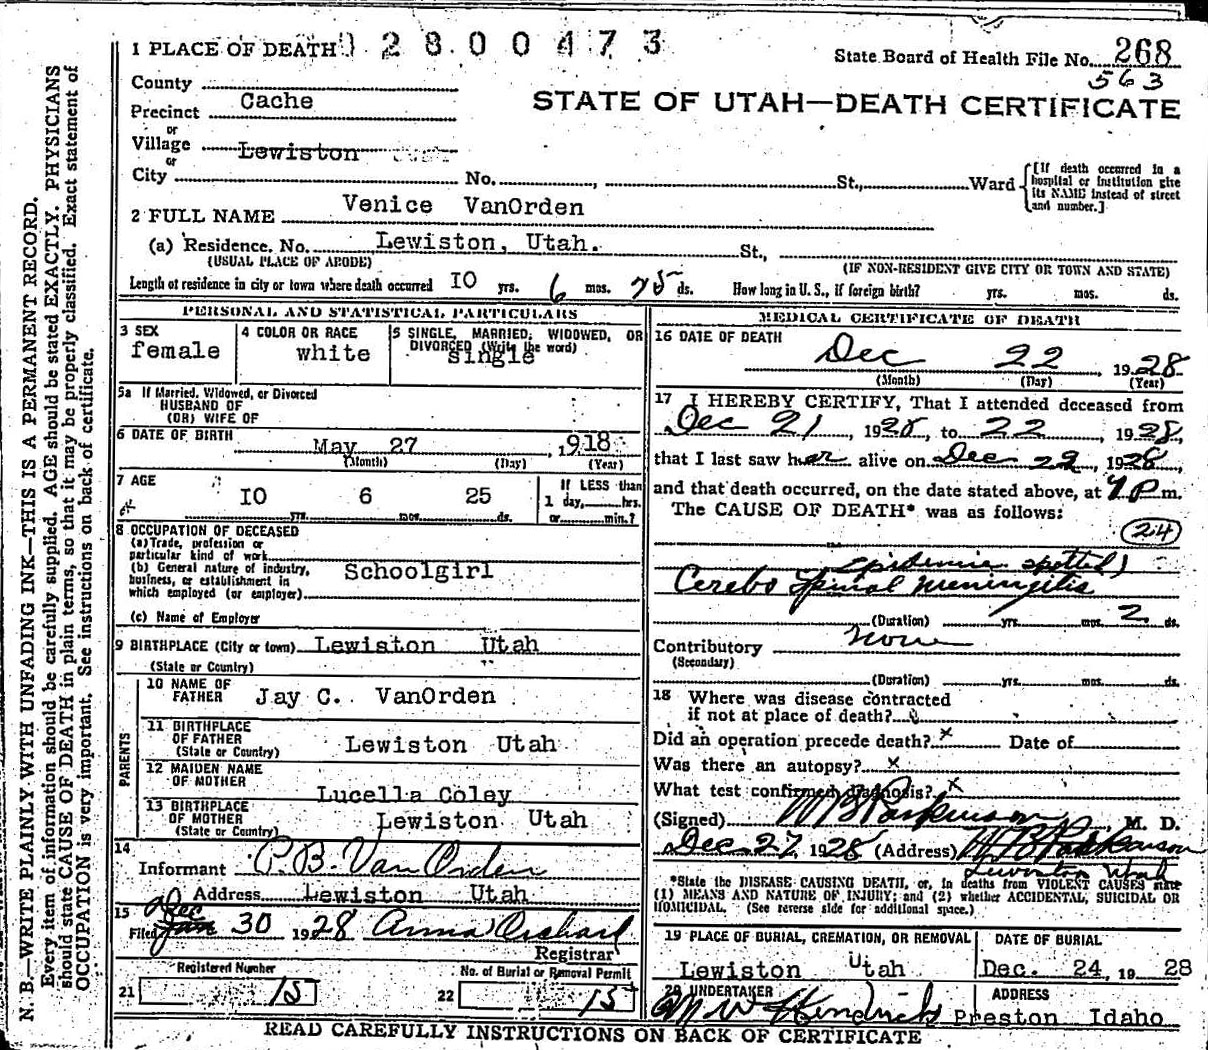 1 PLACE OF DEATH 2 8 0 0 4 7 3
State Board of Health File No. 268
563
County
Precinct Cache
or
Village Lewiston
or
City No. , St., Ward
[If death occurred in a hospital or institution give its NAME instead of street and number.]
STATE OF UTAH—DEATH CERTIFICATE
2 FULL NAME Venice VanOrden
(a) Residence. No. Lewiston, Utah. St.,
(USUAL PLACE OF ABODE) (IF NON-RESIDENT GIVE CITY OR TOWN AND STATE)
Length of residence in city or town where death occurred 10 yrs. 6 mos. 25 ds. How long in U. S., if foreign birth? yrs. mos. ds.
PERSONAL AND STATISTICAL PARTICULARS
3 SEX
female
4 COLOR OR RACE
white
5 SINGLE, MARRIED, WIDOWED, OR DIVORCED (Write the word)
single
5a If Married, Widowed, or Divorced
HUSBAND OF
(OR) WIFE OF
6 DATE OF BIRTH May 27 , 1918
(Month) (Day) (Year)
7 AGE
10 yrs. 6 mos. 25 ds.
If LESS than
1 day, hrs.
or min.?
8 OCCUPATION OF DECEASED
(a) Trade, profession or
particular kind of work
(b) General nature of industry,
business, or establishment in
which employed (or employer)
Schoolgirl
(c) Name of Employer
9 BIRTHPLACE (City or town) Lewiston Utah
(State or Country) "
PARENTS
10 NAME OF
FATHER Jay C. VanOrden
11 BIRTHPLACE
OF FATHER
(State or Country) Lewiston Utah
12 MAIDEN NAME
OF MOTHER
Lucella Coley
13 BIRTHPLACE
OF MOTHER
(State or Country) Lewiston Utah
14
Informant P. B. Van Orden
Address Lewiston Utah
15
Dec
Filed Jan 30 1928 Anna Orchard
Registrar
Registered Number
21 15
No. of Burial or Removal Permit
22 15
MEDICAL CERTIFICATE OF DEATH
16 DATE OF DEATH
Dec 22 , 1928
(Month) (Day) (Year)
17 I HEREBY CERTIFY, That I attended deceased from
Dec 21 , 1928, to 22 , 1928,
that I last saw her alive on Dec 22, 1928,
and that death occurred, on the date stated above, at 7 P m.
The CAUSE OF DEATH* was as follows:
24
Epidemic spotted)
Cerebo Spinal Meningitis
(Duration) yrs. mos. 2 ds.
Contributory None
(Secondary)
(Duration) yrs. mos. ds.
18 Where was disease contracted
if not at place of death?
Did an operation precede death? x Date of
Was there an autopsy? x
What test confirmed diagnosis? x
(Signed) W B Parkinson, M. D.
Dec 27, 1928 (Address) W B Parkinson
Lewiston Utah
*State the DISEASE CAUSING DEATH, or, in deaths from VIOLENT CAUSES state
(1) MEANS AND NATURE OF INJURY; and (2) whether ACCIDENTAL, SUICIDAL OR
HOMICIDAL. (See reverse side for additional space.)
19 PLACE OF BURIAL, CREMATION, OR REMOVAL
Lewiston Utah
DATE OF BURIAL
Dec. 24, 1928
20 UNDERTAKER
W Hendricks
ADDRESS
Preston Idaho
READ CAREFULLY INSTRUCTIONS ON BACK OF CERTIFICATE
N. B.—WRITE PLAINLY WITH UNFADING INK—THIS IS A PERMANENT RECORD.
Every item of information should be carefully supplied. AGE should be stated EXACTLY. PHYSICIANS
should state CAUSE OF DEATH in plain terms, so that it may be properly classified. Exact statement of
OCCUPATION is very important. See instructions on back of certificate.